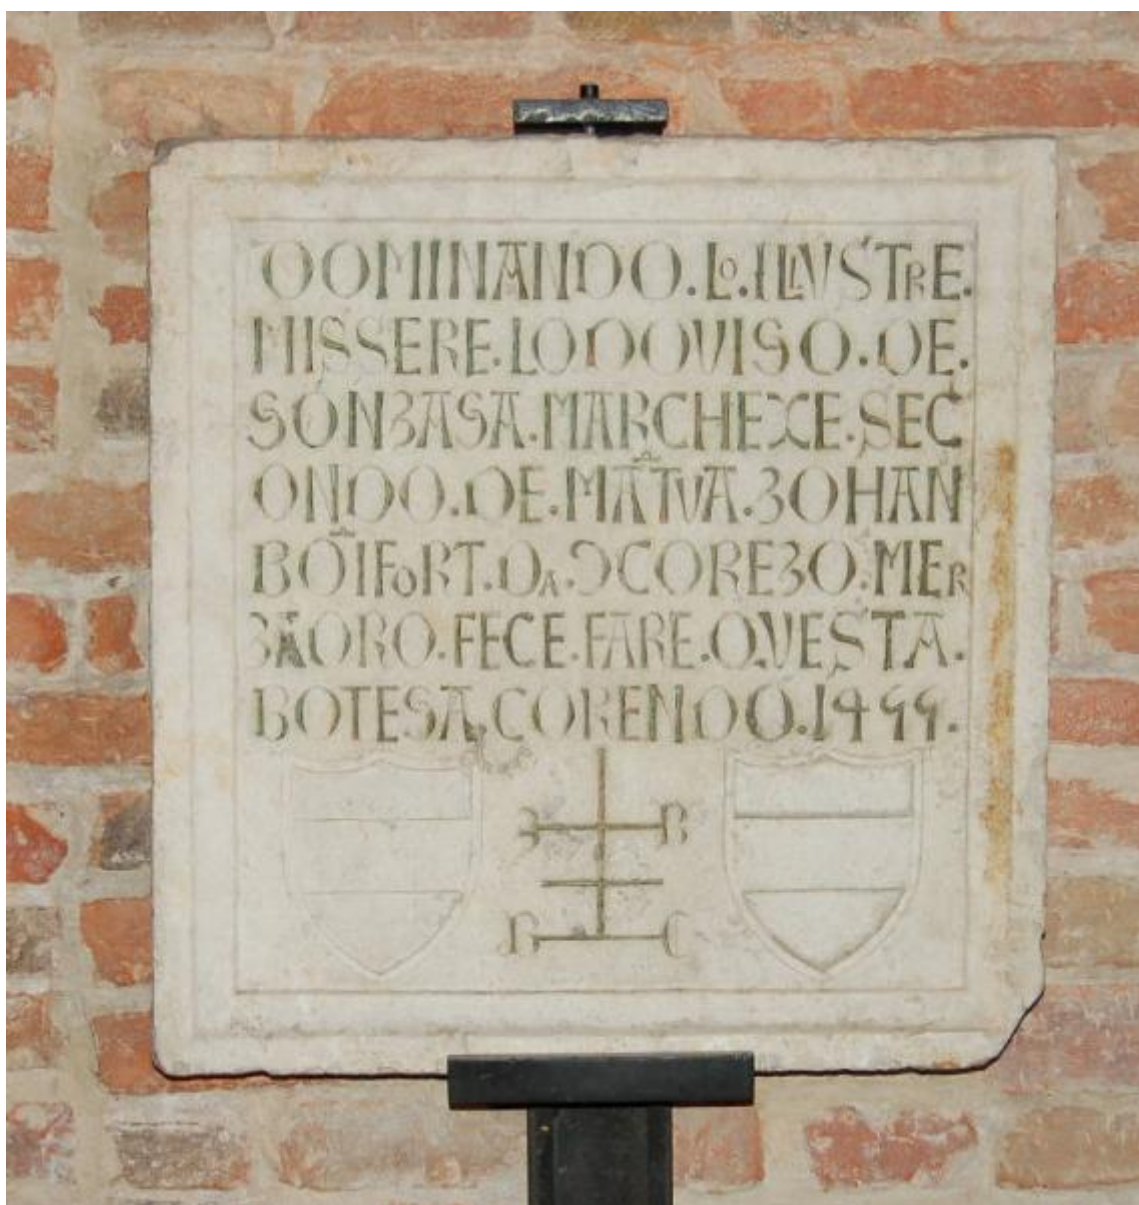 DOMINANDO.LO.ILLVSTRE.
MISSERE.LODOVISO.DE.
GONZAGA.MARCHEXE.SEC
ONDO.DE.MÃTVA.ZOHAN
BÕIFORT.DA.CCOREZO.MER
ZÃDRO.FECE.FARE.QVESTA.
BOTEGA.CORENDO.1444.
Z B
B C